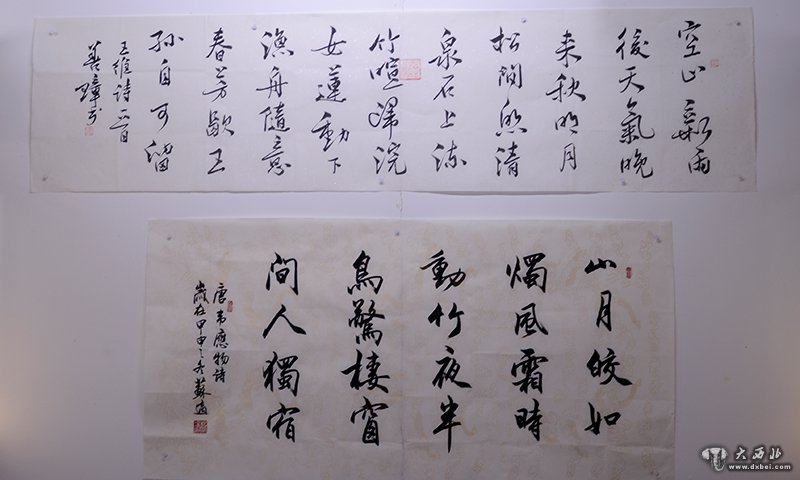 空山新雨
後天氣晚
来秋明月
松間照清
泉石上流
竹喧歸浣
女蓮動下
漁舟隨意
春芳歇王
孫自可留
王維詩一首
善璋书
山月皎如
燭風霜時
動竹夜半
鳥驚棲窗
間人獨宿
唐韦應物詩
歲在甲申之冬蘇
大西北
www.dxbei.com